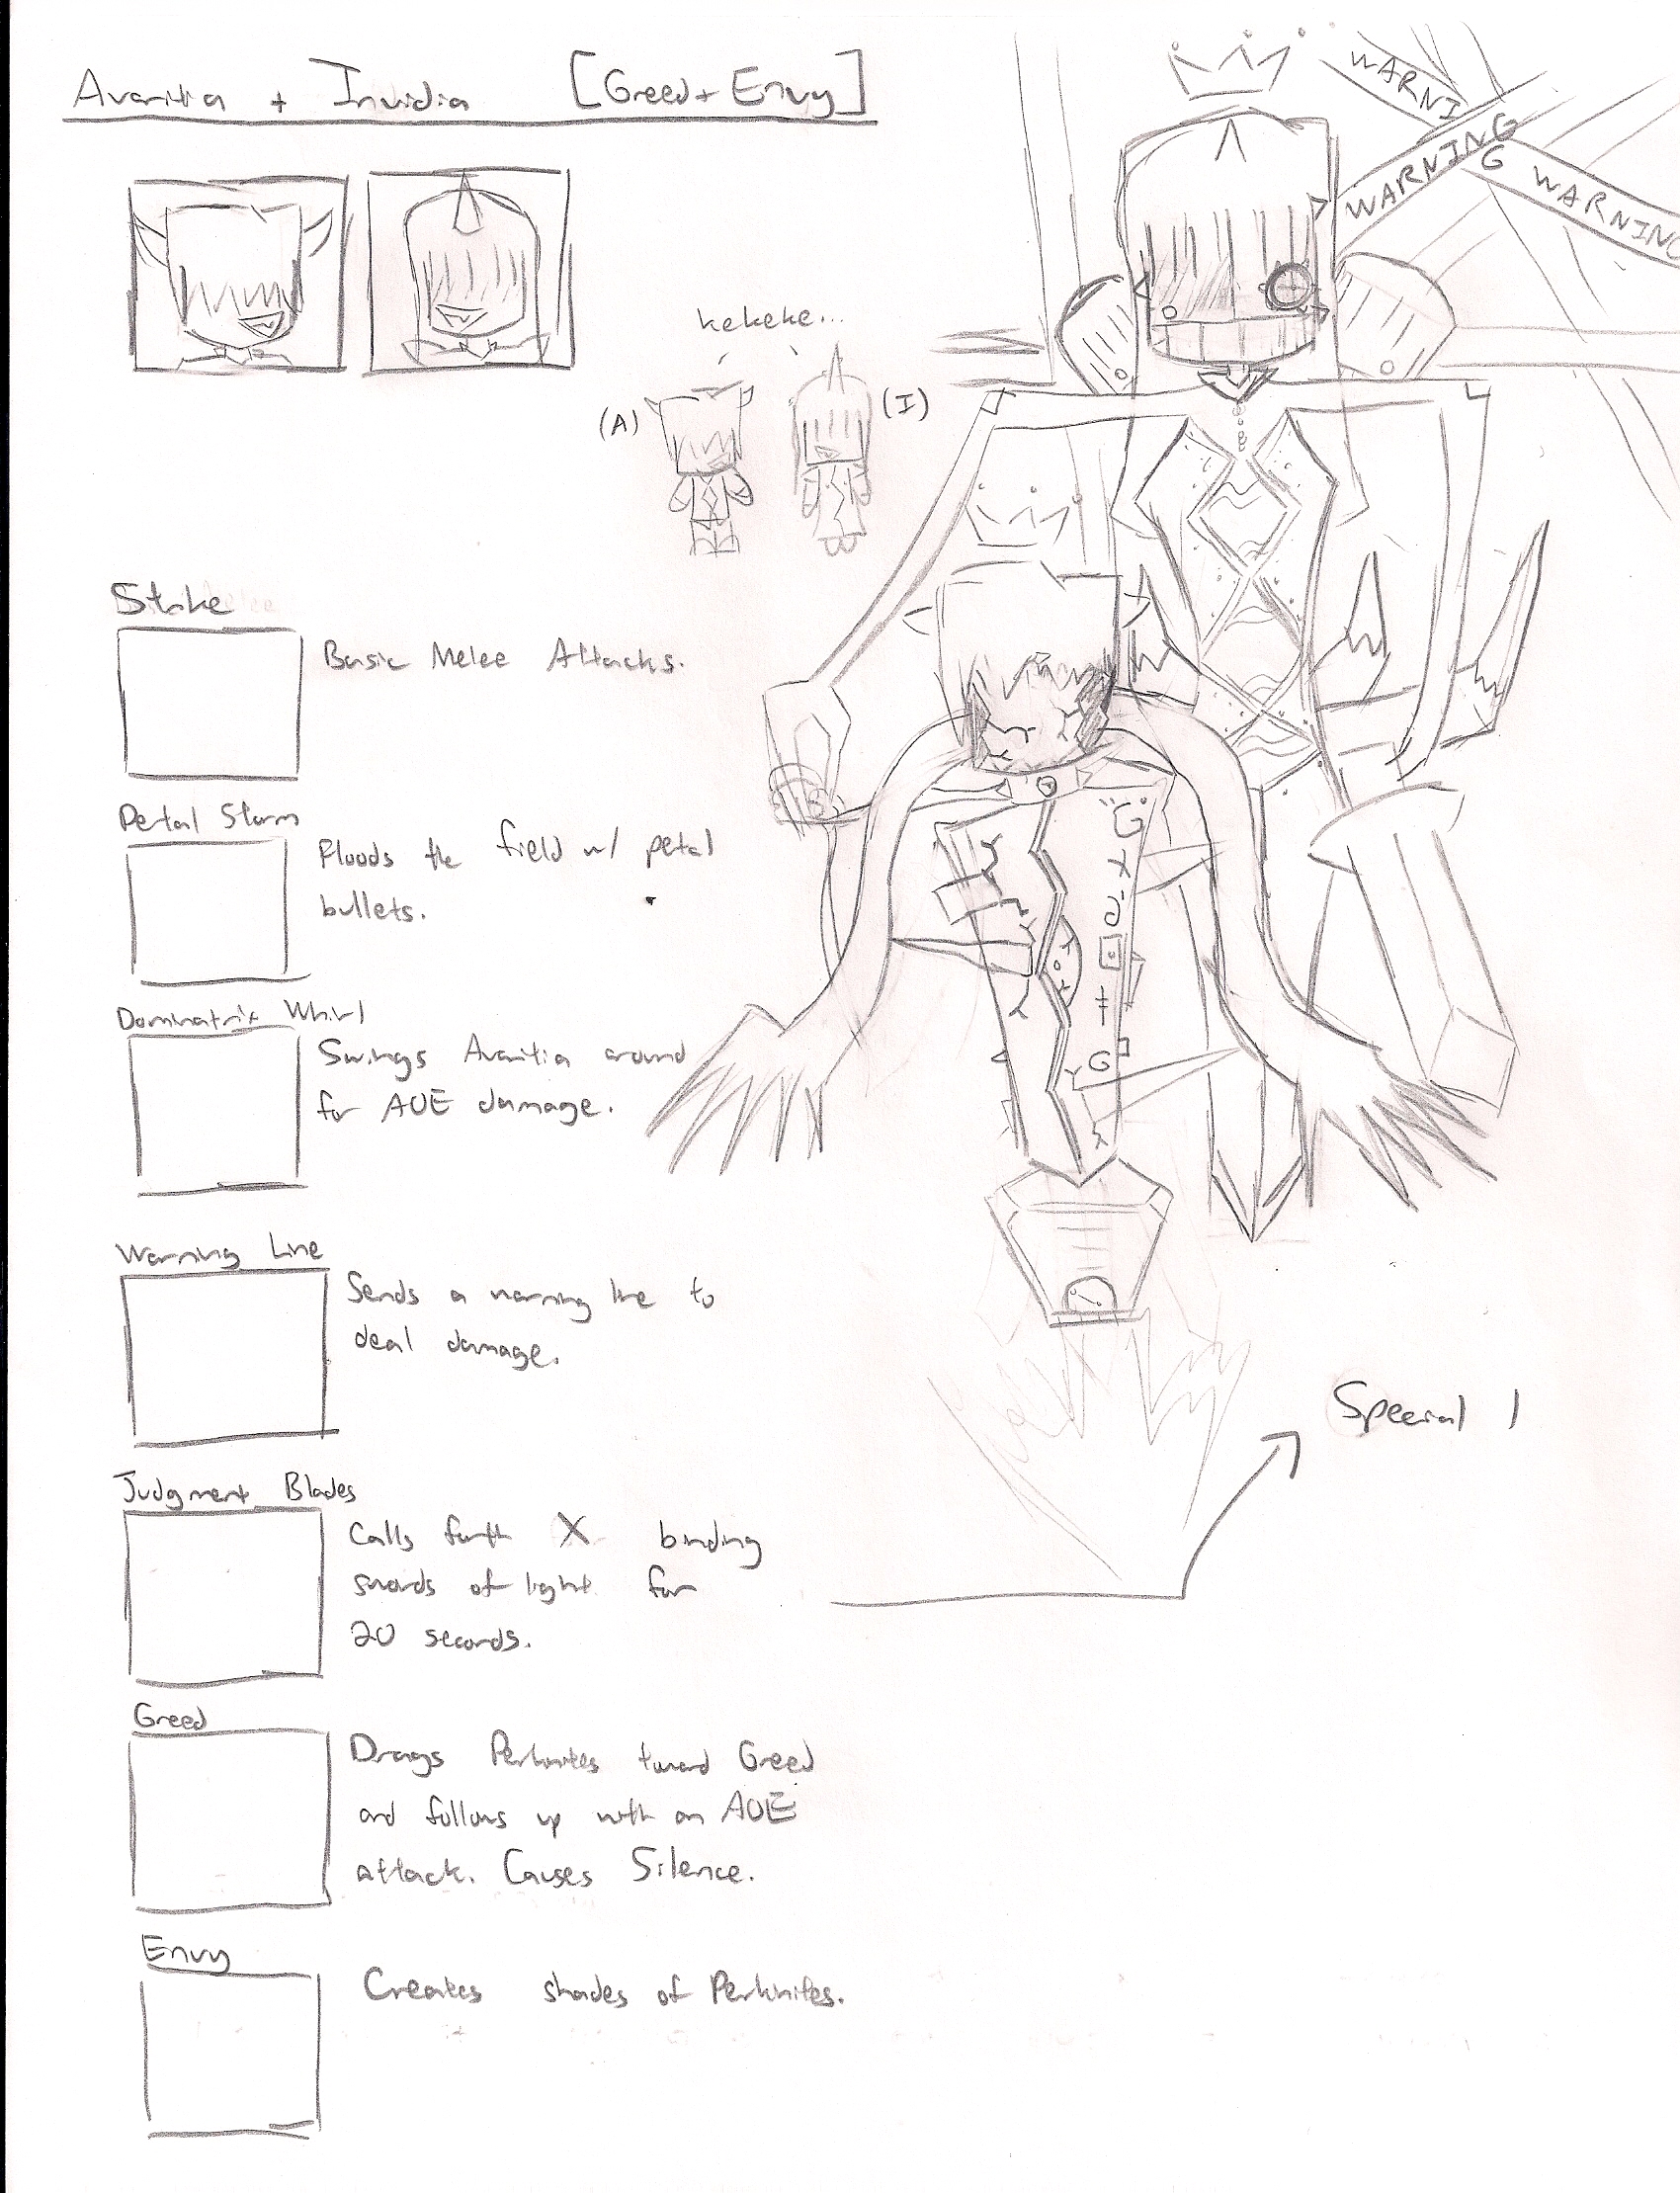 Avaritia + Invidia [Greed + Envy]
WARNI
WARNING
G WARNING
kekeke...
(A)
(I)
Strike
Basic Melee Attacks.
Petal Storm
Floods the field w/ petal
bullets.
Dominatrix Whirl
Swings Avaritia around
for AOE damage.
Warning Line
Sends a warning line to
deal damage.
Special 1
Judgment Blades
Calls forth X binding
swords of light for
20 seconds.
Greed
Drags Perkinites toward Greed
and follows up with an AOE
attack. Causes Silence.
Envy
Creates shades of Perkinites.